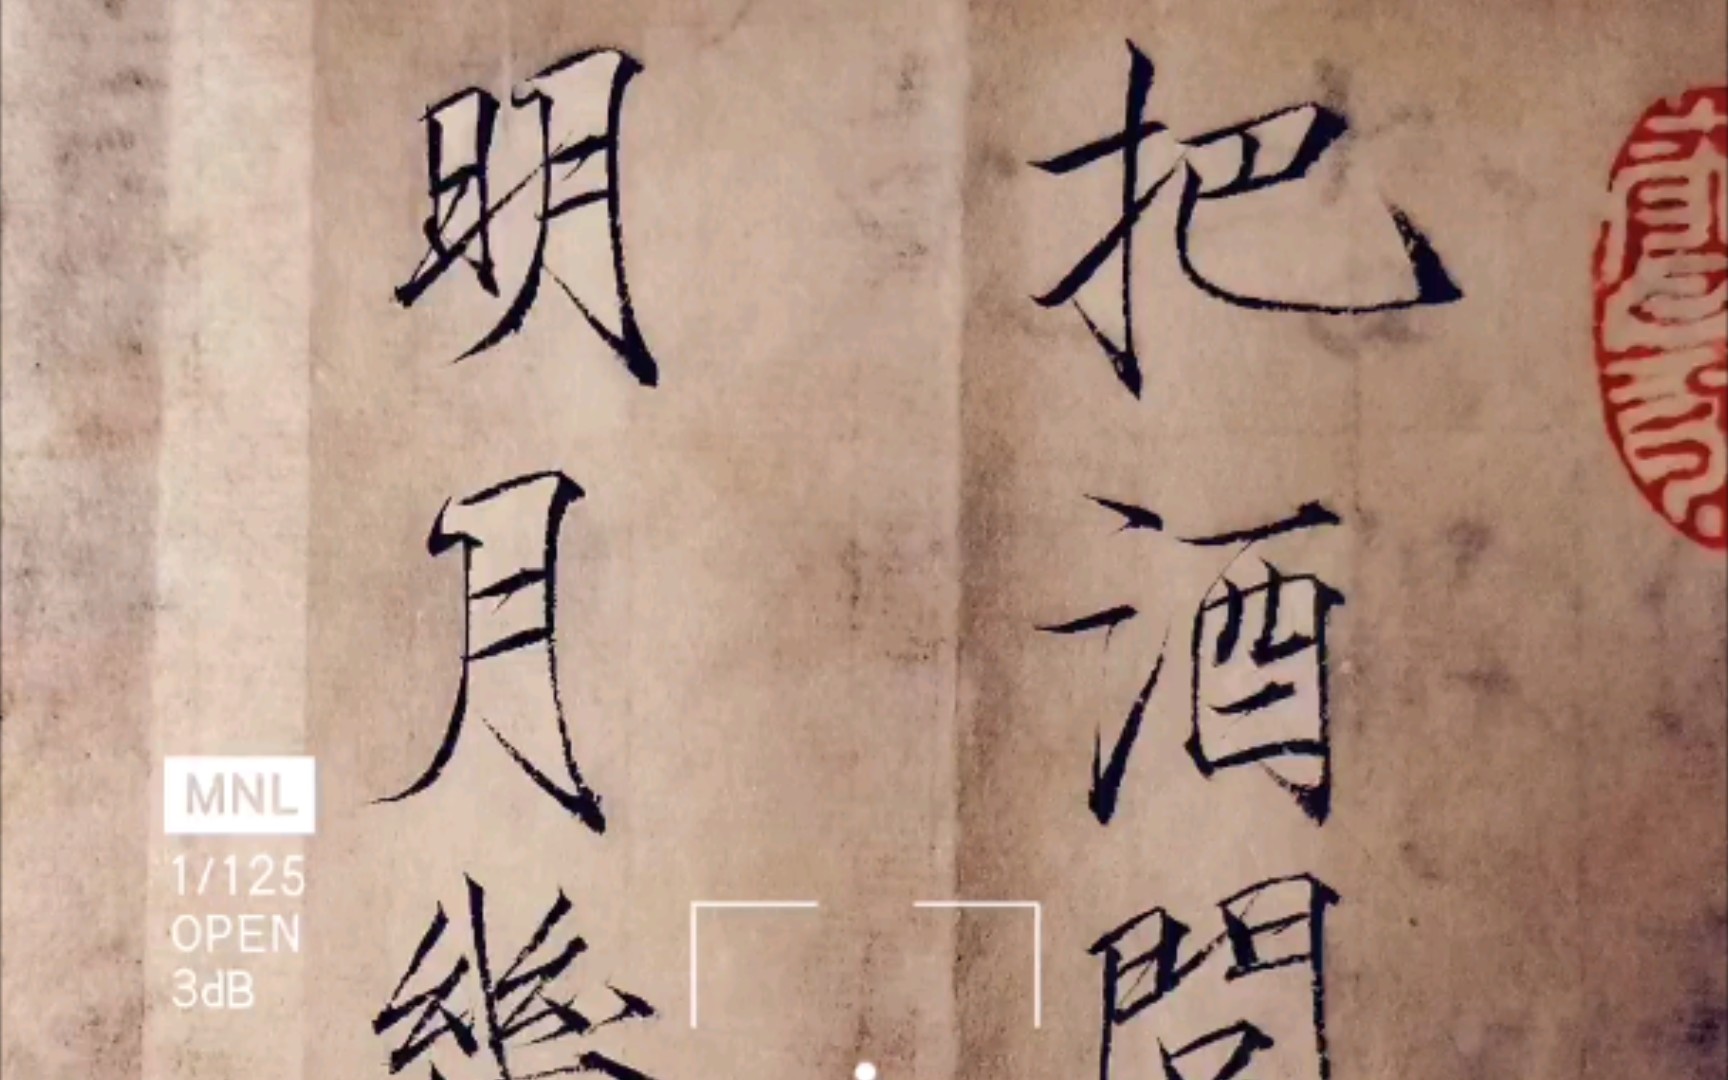 把酒問
明月幾
MNL
1/125
OPEN
3dB